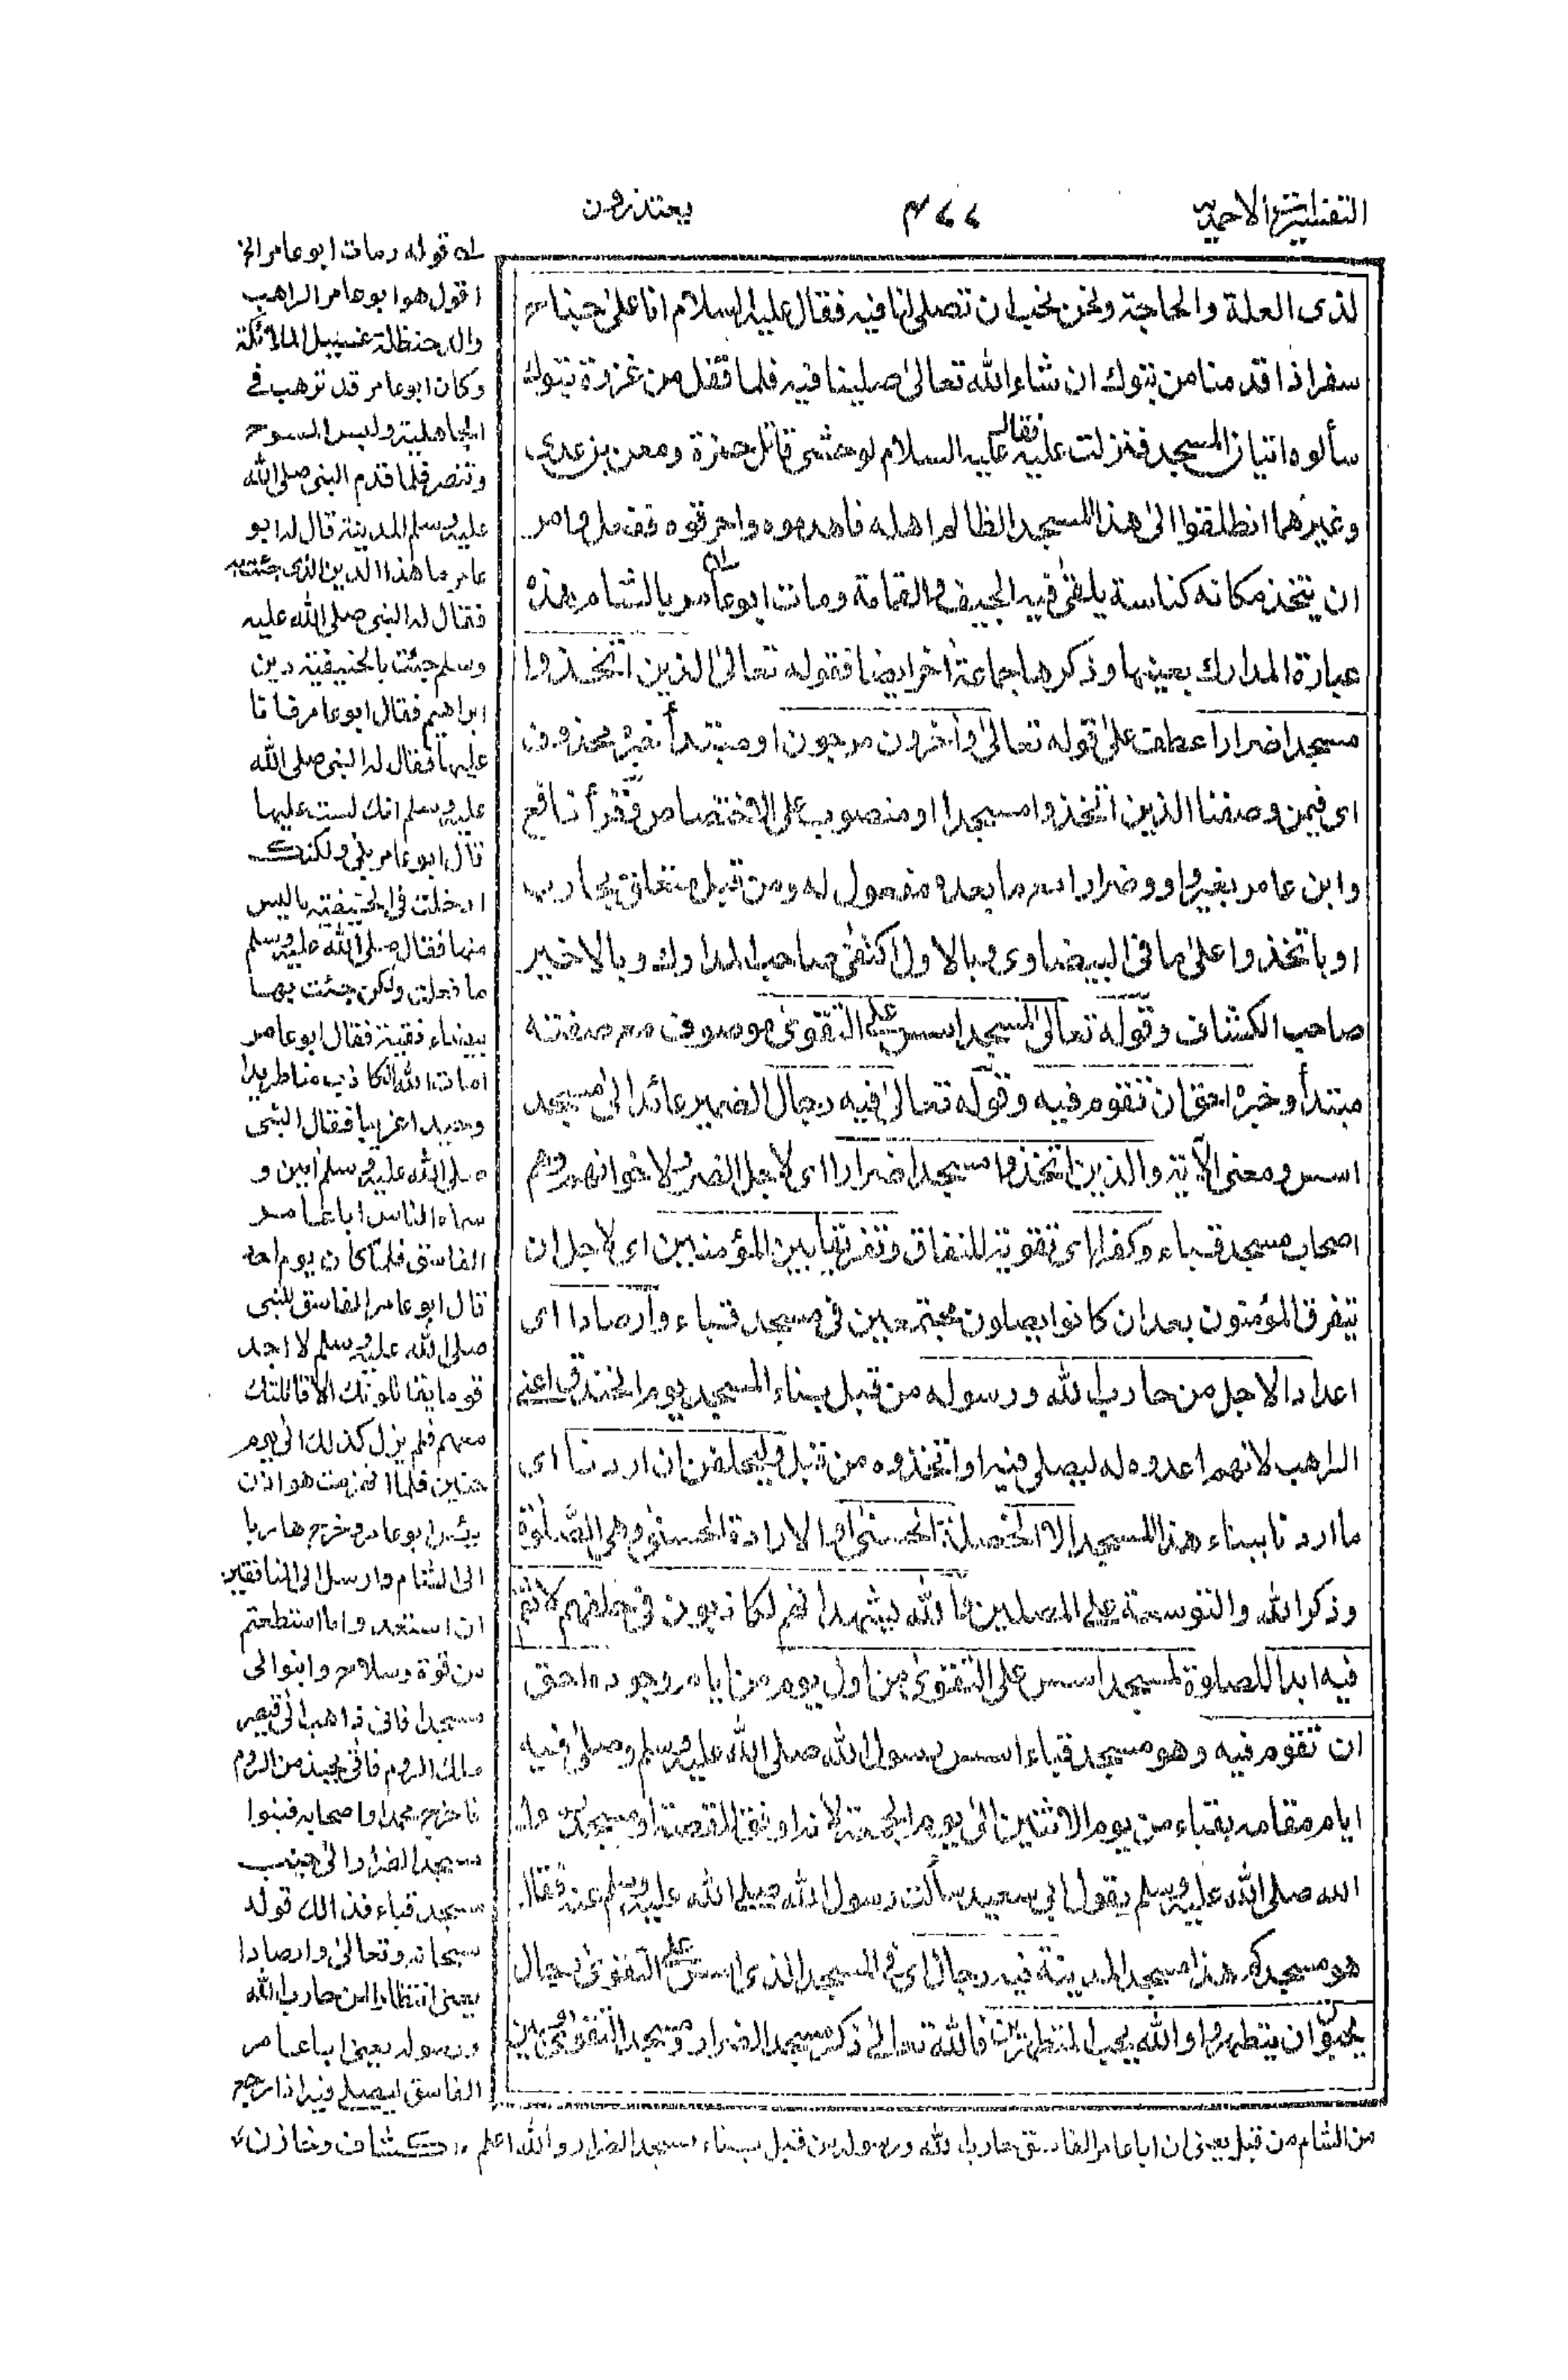 التفسيرات الاحمدية
٤٧٧
يعتذرون
لذى العلة والحاجة ونحن نحب ان تصلى لنا فيه فقال عليه السلام انا على جناح
سفر اذا قدمنا من تبوك ان شاء الله تعالى صلينا فيه فلما قفل من غزوة تبوك
سألوه اتيان المسجد فنزلت عليه فقال عليه السلام لوحشى قاتل حمزة ومعن بن عدى
وغيرهما انطلقوا الى هذا المسجد الظالم اهله فاهدموه واحرقوه ففعل وامر
ان يتخذ مكانه كناسة يلقى فيه الجيف والقمامة ومات ابو عامر بالشام هذه
عبارة المدارك بعينها وذكرها جماعة اخر ايضا فقوله تعالى الذين اتخذوا
مسجدا ضرارا عطف على قوله تعالى وآخرون مرجون او مبتدأ خبره محذوف
اى فيمن وصفنا الذين اتخذوا مسجدا او منصوب على الاختصاص وقرأ نافع
وابن عامر بغير واو وضرارا مع ما بعده مفعول له ومن قبل متعلق بحارب
او باتخذوا على ما فى البيضاوى وبالاول اكتفى صاحب المدارك وبالاخير
صاحب الكشاف وقوله تعالى لمسجد اسس على التقوى موصوف مع صفته
مبتدأ وخبره احق ان تقوم فيه وقوله تعالى فيه رجال الضمير عائد الى مسجد
اسس ومعنى الآية والذين اتخذوا مسجدا ضرارا اى لاجل الضرر لاخوانهم وهم
اصحاب مسجد قباء وكفرا اى تقوية للنفاق وتفريقا بين المؤمنين اى لاجل ان
يتفرق المؤمنون بعد ان كانوا يصلون مجتمعين فى مسجد قباء وارصادا اى
اعدادا لاجل من حارب الله ورسوله من قبل بناء المسجد يوم الخندق اعنى
الراهب لانهم اعدوه له ليصلى فيه او اتخذوه من قبل وليحلفن ان اردنا اى
ما اردنا ببناء هذا المسجد الا الخصلة الحسنى او الارادة الحسنى وهى الصلوة
وذكر الله والتوسعة على المصلين والله يشهد انهم لكاذبون فى حلفهم لا تقم
فيه ابدا للصلوة لمسجد اسس على التقوى من اول يوم من ايام وجوده احق
ان تقوم فيه وهو مسجد قباء اسسه رسول الله صلى الله عليه وسلم وصلى فيه
ايام مقامه بقباء من يوم الاثنين الى يوم الجمعة لانه اوفق للقصة او مسجد رسول
الله صلى الله عليه وسلم يقول ابى سعيد سألت رسول الله صلى الله عليه وسلم عنه فقال
هو مسجدكم هذا مسجد المدينة فيه رجال اى فى المسجد الذى اسس على التقوى رجال
يحبون ان يتطهروا والله يحب المتطهرين فالله تعالى ذكر مسجد الضرار ومسجد التقوى
له قوله ومات ابو عامر الخ
اقول هو ابو عامر الراهب
والد حنظلة غسيل الملائكة
وكان ابو عامر قد ترهب فى
الجاهلية ولبس المسوح
وتنصر فلما قدم النبى صلى الله
عليه وسلم المدينة قال له ابو
عامر ما هذا الدين الذى جئت به
فقال له النبى صلى الله عليه
وسلم جئت بالحنيفية دين
ابراهيم فقال ابو عامر فانا
عليها فقال له النبى صلى الله
عليه وسلم انك لست عليها
قال ابو عامر بلى ولكنك
ادخلت فى الحنيفية ما ليس
منها فقال صلى الله عليه وسلم
ما فعلت ولكن جئت بها
بيضاء نقية فقال ابو عامر
امات الله الكاذب منا طريدا
وحيدا غريبا فقال النبى
صلى الله عليه وسلم آمين و
سماه الناس ابا عامر
الفاسق فلما كان يوم احد
قال ابو عامر الفاسق للنبى
صلى الله عليه وسلم لا اجد
قوما يقاتلونك الا قاتلتك
معهم فلم يزل كذلك الى يوم
حنين فلما انهزمت هوازن
يئس ابو عامر وخرج هاربا
الى الشام وارسل الى المنافقين
ان استعدوا ما استطعتم
من قوة وسلاح وابنوا لى
مسجدا فانى ذاهب الى قيصر
ملك الروم فآتى بجند من الروم
فاخرج محمدا واصحابه فبنوا
مسجد الضرار الى جنب
مسجد قباء فذلك قوله
سبحانه وتعالى وارصادا
يعنى انتظارا لمن حارب الله
ورسوله يعنى ابا عامر
الفاسق ليصلى فيه اذا رجع
من الشام من قبل يعنى ان ابا عامر الفاسق حارب الله ورسوله من قبل بناء مسجد الضرار والله اعلم ١٢ كشاف وخازن